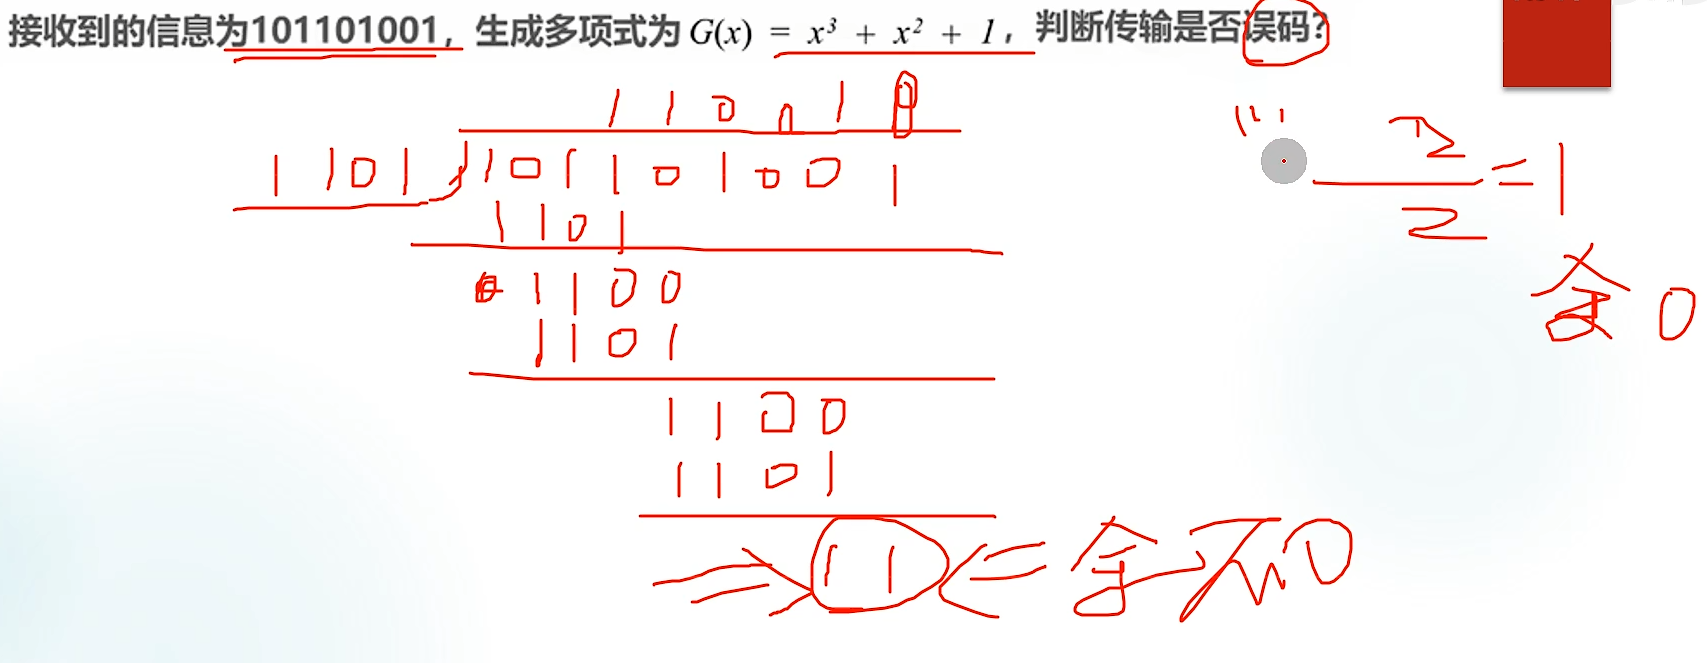 接收到的信息为101101001，生成多项式为 G(x) = x³ + x² + 1，判断传输是否误码？
1 1 0 0 1 0
1 1 0 1 1 0 1 1 0 1 0 0 1
1 1 0 1
1 1 0 0
1 1 0 1
1 1 0 0
1 1 0 1
1 1 余 不 0
2
2
= 1
余 0